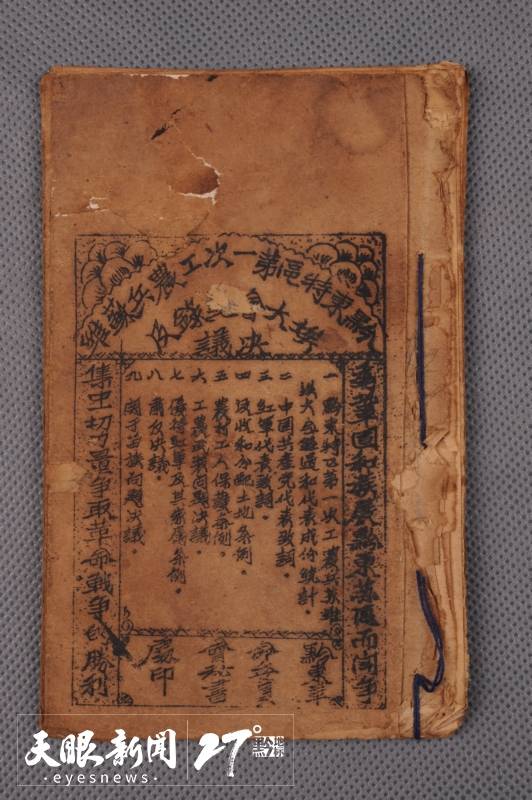 黔東特區第一次工農兵蘇維
埃大會
及决議
爲鞏固和發展黔東蘇區而鬥爭
一 黔東特区第一次工農兵苏维
埃大会經過和代表成份統計。
二 中國共產党代表致詞。
三 紅軍代表致詞。
四 没收和分配土地条例。
五 農村工人保護条例。
六 工農武装問題决議。
七 優待紅軍及其家屬条例。
八 肅反决議。
九 関于苗族問題决議。
集中一切力量爭取革命戰爭的勝利
黔東革
命委員
會秘書
處印
天眼新闻 27°黔地标
·eyesnews·